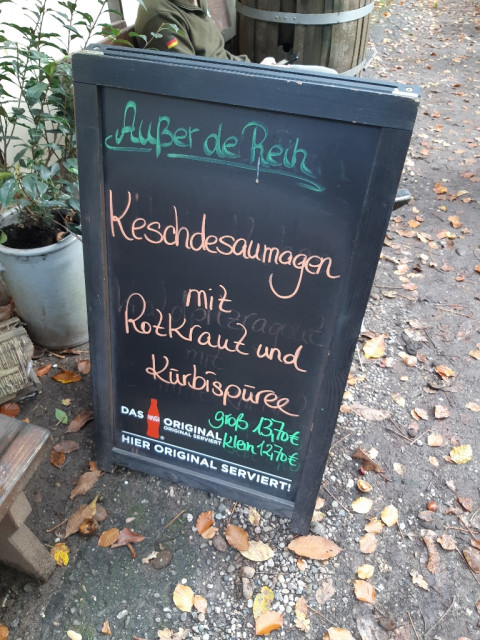 Außer de Reih
Keschdesaumagen
mit
Rotkraut und
Kürbispüree
groß 13,70€
klein 12,70€
DAS ORIGINAL
ORIGINAL SERVIERT
HIER ORIGINAL SERVIERT!